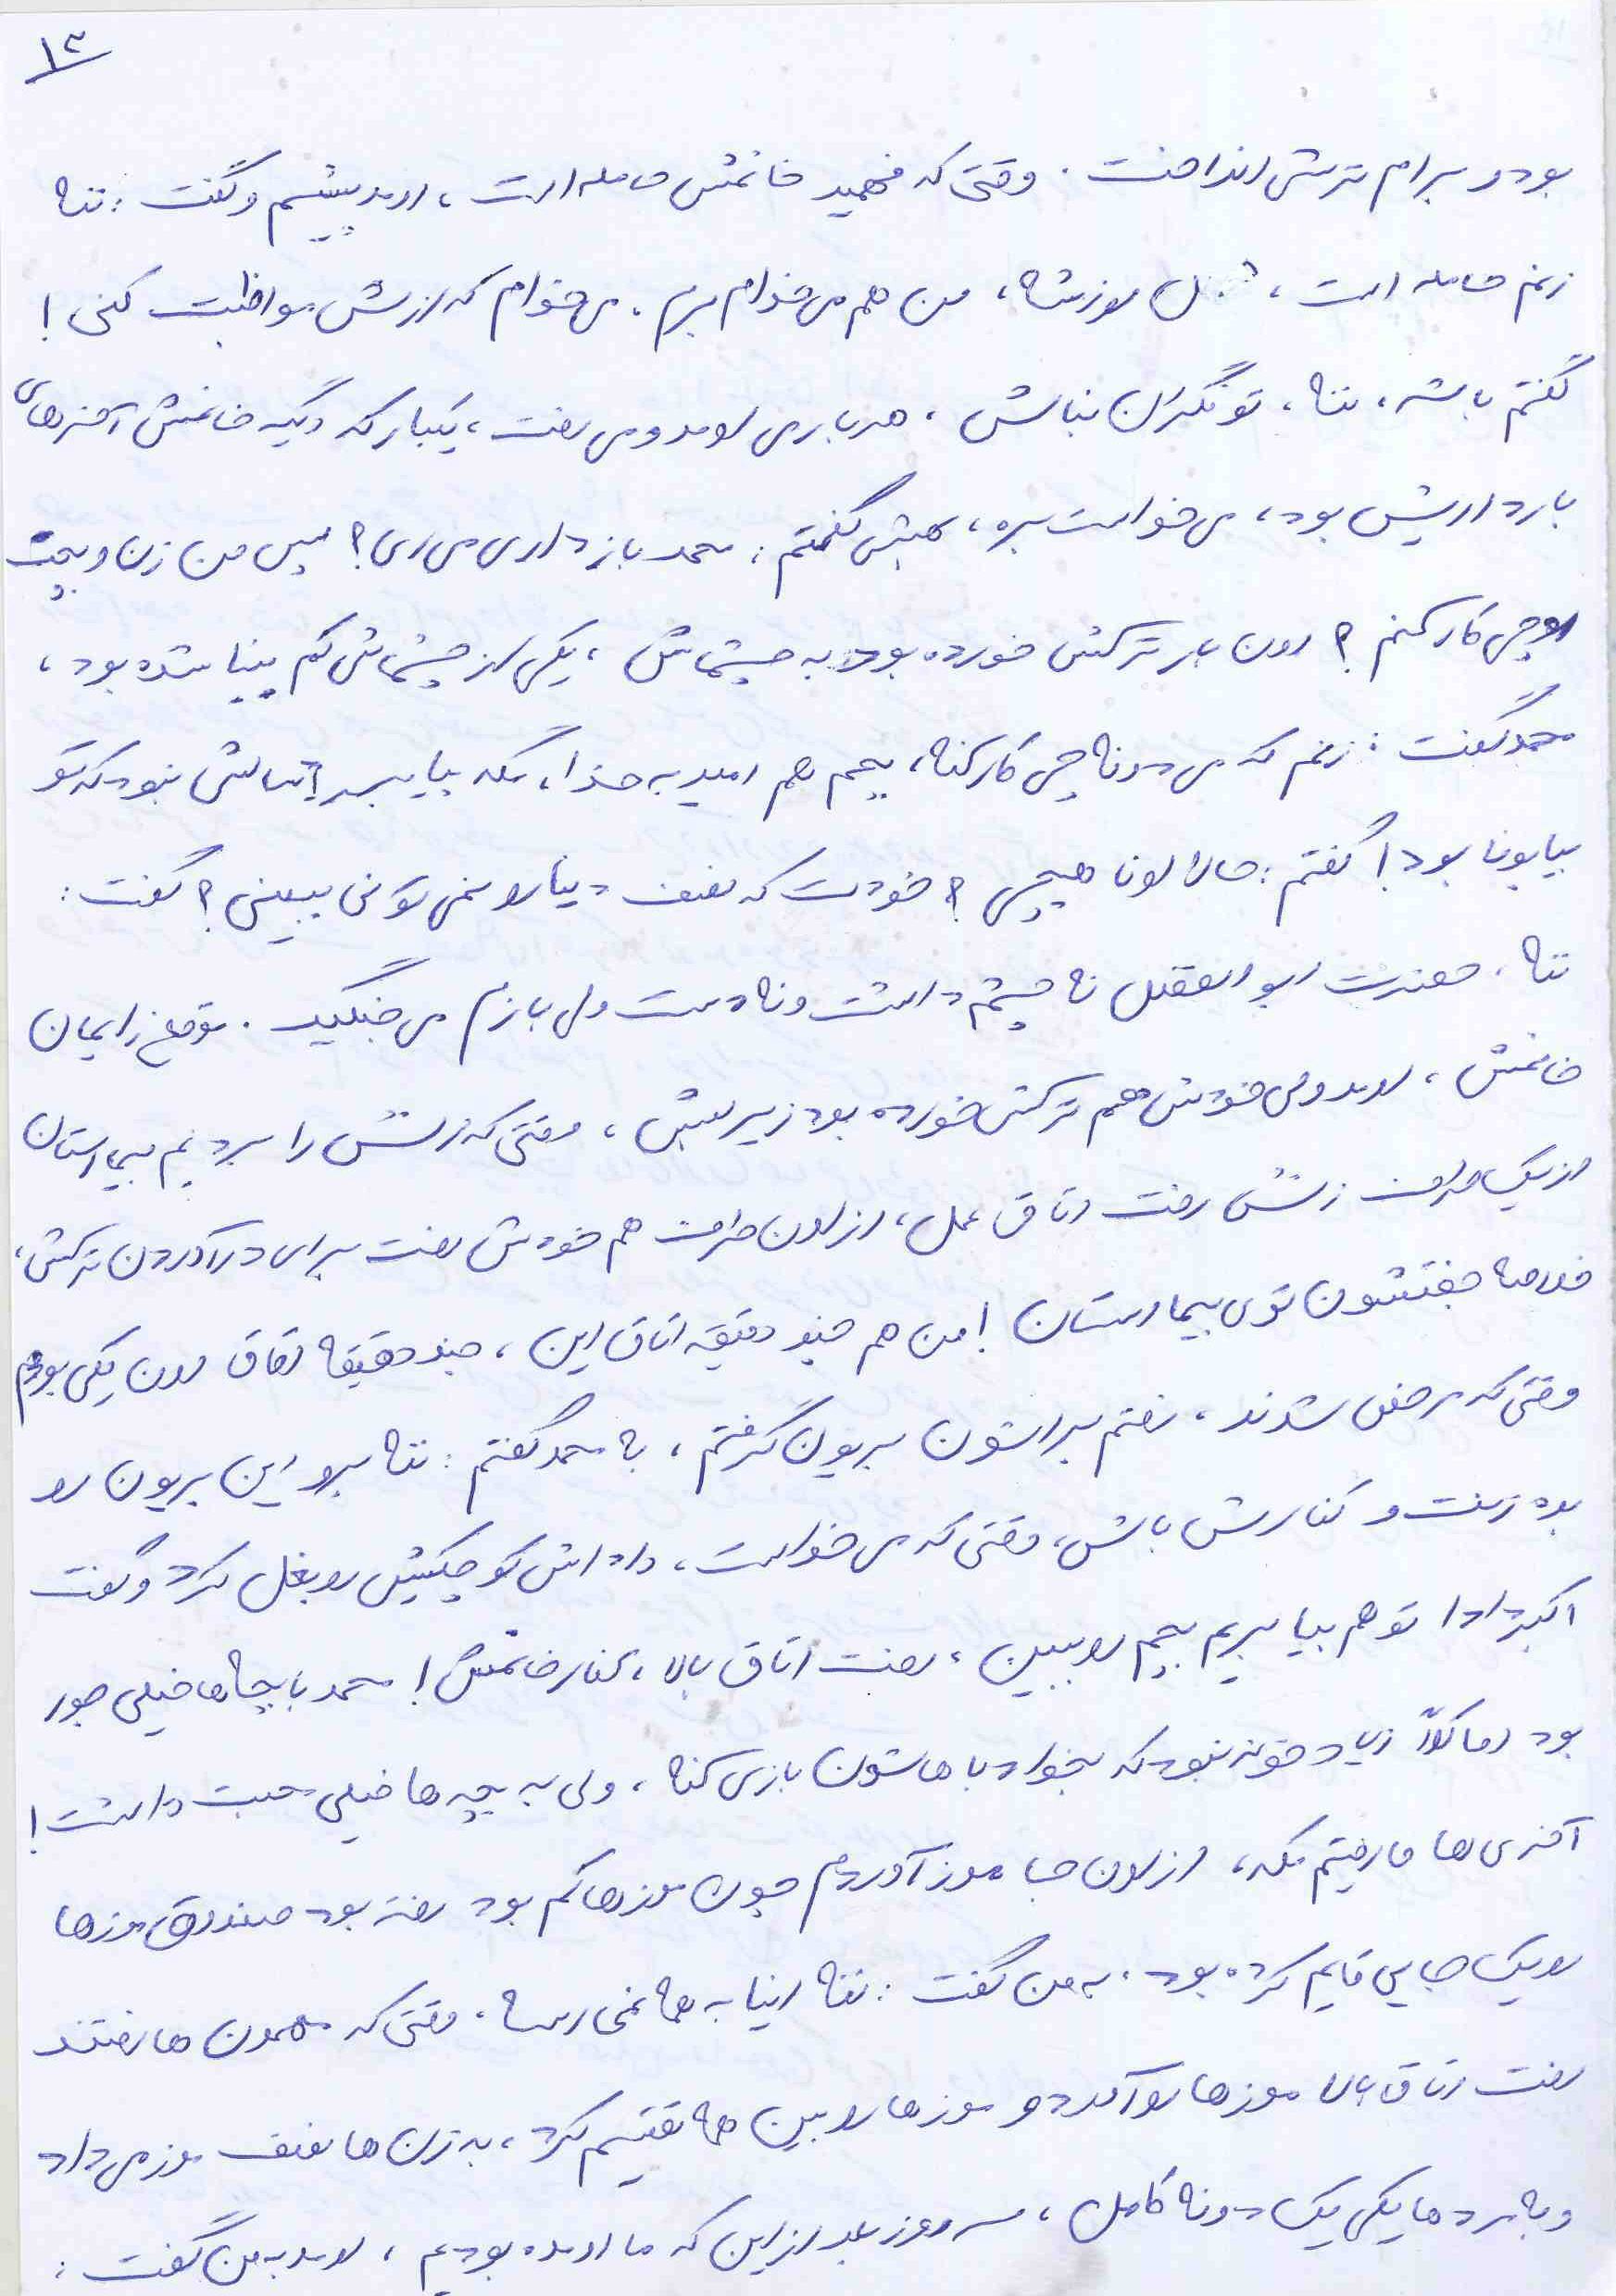 ۱۳
بود و برام ترشی انداخت. وقتی که فهمید خانمش حامله است، اومد پیشم و گفت: ننه
زنم حامله است، اوزش، من هم می خوام برم. می خوام که ازش مواظبت کنی!
گفتم باشه، ننه، تو نگران نباش. هر باری اومد و می رفت، یکبار که دیگه خانمش آخرهای
بارداریش بود، می خواست بره، بهش گفتم: محمد باز داری می ری؟ پس من زن و بچت
رو چی کار کنم؟ اون بار ترکش خورده بود به چشماش، یکی از چشماش کم بینا شده بود،
محمد گفت: زنم که می دونه چی کار کنه، بچم هم امید به خدا، مگه بابا پیر نبود که تو
بیابونا بود! گفتم: حالا اونا هیچی؟ خودت که نصف دنیا رو نمی تونی ببینی؟ گفت:
ننه، حضرت ابوالفضل نه چشم داشت و نه دست ولی بازم می جنگید. موقع زایمان
خانمش، اومد ولی خودش هم ترکش خورده بود زیر لبش، وقتی که زنش را بردیم بیمارستان
از یک طرف زنش رفت اتاق عمل، از اون طرف هم خودش رفت برای درآوردن ترکش،
خلاصه جفتشون توی بیمارستان! من هم چند دقیقه اتاق این، چند دقیقه اتاق اون یکی بودم
وقتی که مرخص شدند، رفتم براشون بریون گرفتم، به محمد گفتم: ننه برو این بریون رو
بده زنت و کنارش باش، وقتی که می خواست، داداش کوچیکیش رو بغل کرد و گفت
اکبر دادا تو هم بیا بریم بچم رو ببین، رفت اتاق بالا، کنار خانمش! محمد با بچه ها خیلی جور
بود اما کلاً زیاد خونه نبود که بخواد باهاشون بازی کنه، ولی به بچه ها خیلی محبت داشت!
آخری ها ما رفتیم مکه، از اون جا موز آوردم چون موزها کم بود رفته بود صندوق موزها
رو یک جایی قایم کرده بود. به من گفت: ننه اینا به همه نمی رسه. وقتی که مهمون ها رفتند
رفت اتاق بالا موزها رو آورد و موزها رو بین همه تقسیم کرد، به زن ها نصف موز می داد
و به مردها یکی یک دونه کامل، سه روز بعد از این که ما اومده بودیم، اومد به من گفت: